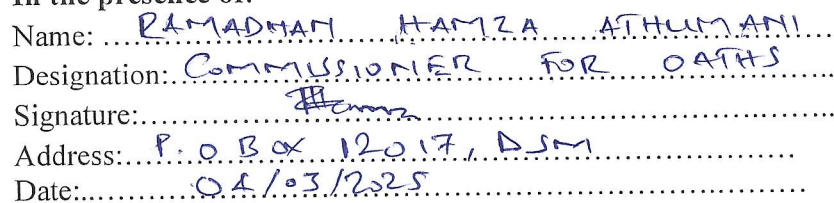 In the presence of:
Name: RAMADHAN HAMZA ATHUMANI
Designation: COMMISSIONER FOR OATHS
Signature:
Address: P.O BOX 12017, DSM
Date: 04/03/2025